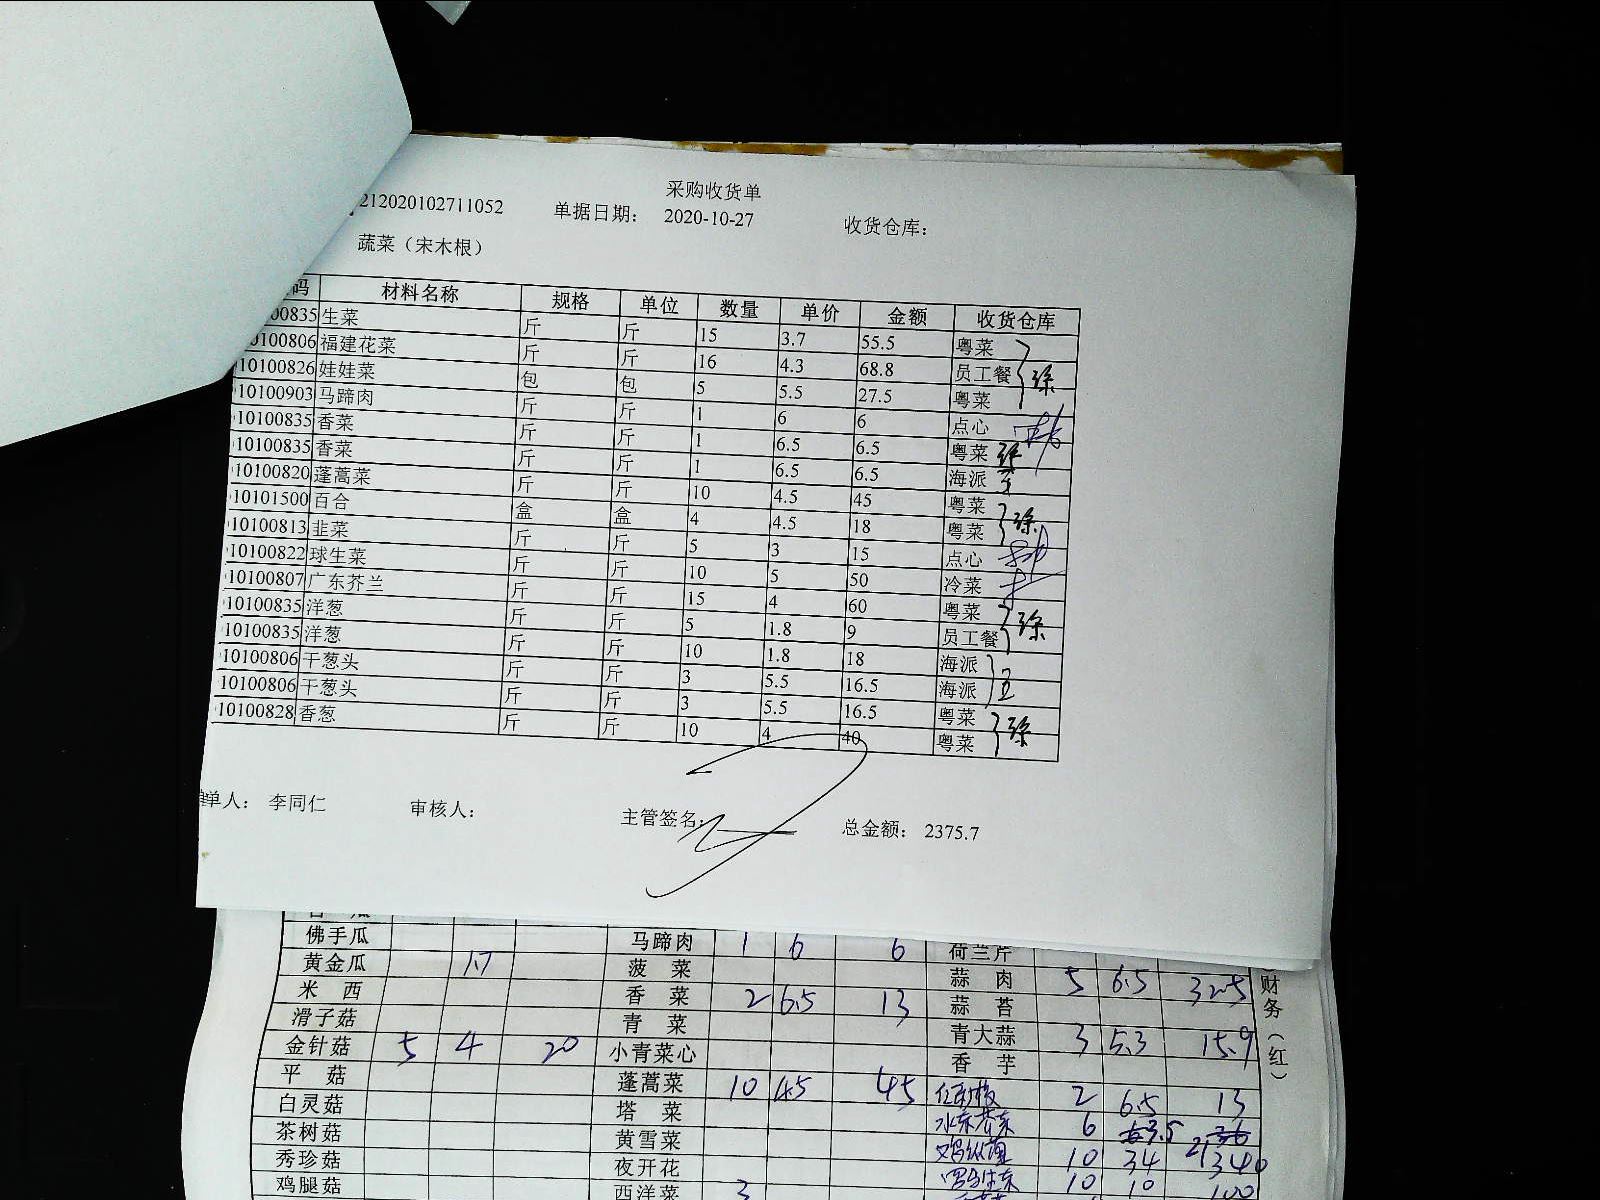 采购收货单
212020102711052 单据日期： 2020-10-27 收货仓库：
蔬菜（宋木根）
码 材料名称 规格 单位 数量 单价 金额 收货仓库
00835 生菜 斤 斤 15 3.7 55.5 粤菜
0100806 福建花菜 斤 斤 16 4.3 68.8 员工餐
10100826 娃娃菜 包 包 5 5.5 27.5 粤菜
10100903 马蹄肉 斤 斤 1 6 6 点心
10100835 香菜 斤 斤 1 6.5 6.5 粤菜
10100835 香菜 斤 斤 1 6.5 6.5 海派
10100820 蓬蒿菜 斤 斤 10 4.5 45 粤菜
10101500 百合 盒 盒 4 4.5 18 粤菜
10100813 韭菜 斤 斤 5 3 15 点心
10100822 球生菜 斤 斤 10 5 50 冷菜
10100807 广东芥兰 斤 斤 15 4 60 粤菜
10100835 洋葱 斤 斤 5 1.8 9 员工餐
10100835 洋葱 斤 斤 10 1.8 18 海派
10100806 干葱头 斤 斤 3 5.5 16.5 海派
10100806 干葱头 斤 斤 3 5.5 16.5 粤菜
10100828 香葱 斤 斤 10 4 40 粤菜
单人： 李同仁 审核人： 主管签名： 总金额： 2375.7
佛手瓜 马蹄肉 1 6 6 荷兰芹
黄金瓜 1.7 菠菜 蒜肉 5 6.5 32.5
米西 香菜 2 6.5 13 蒜苔
滑子菇 青菜 青大蒜 3 5.3 15.9
金针菇 5 4 20 小青菜心 香芋
平菇 蓬蒿菜 10 4.5 45 2 6.5 13
白灵菇 塔菜 6 3.5 21
茶树菇 黄雪菜 10 34 340
秀珍菇 夜开花 10 10 100
鸡腿菇 西洋菜 3
财务（红）